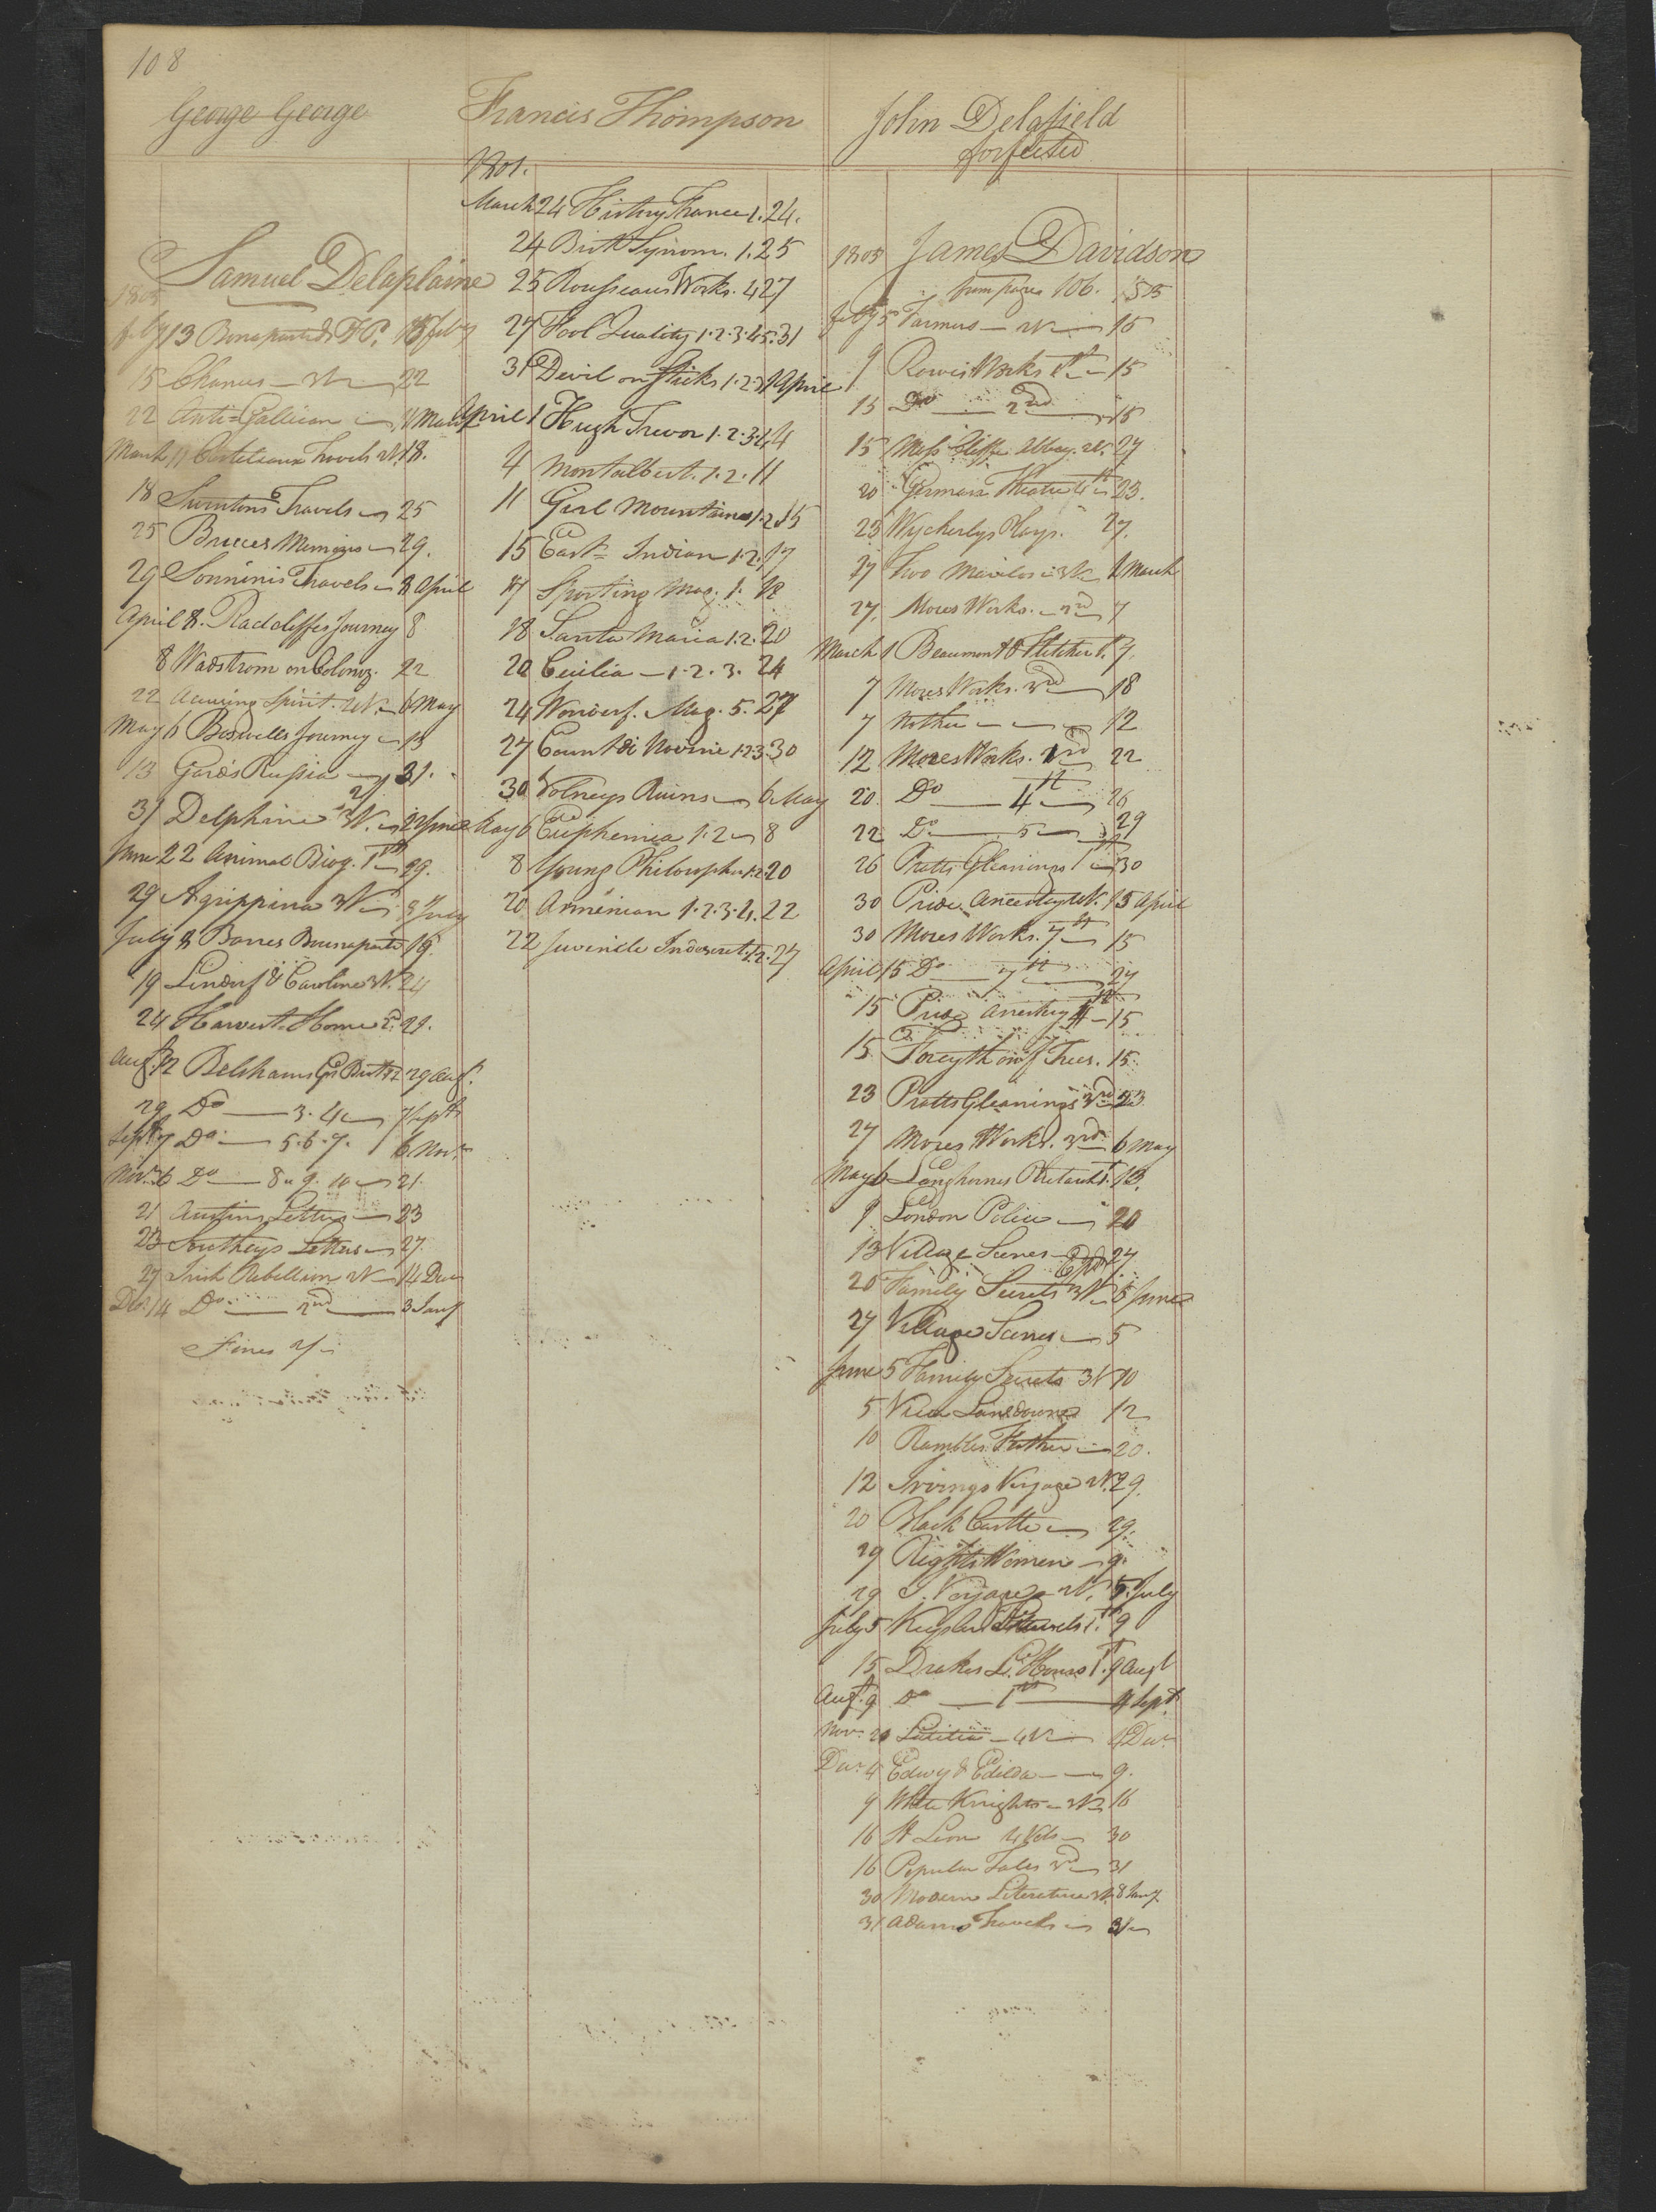 108
George George
Samuel Delaplaine
1805
feby 13 Bonaparte & F P. 15 feby
15 Chances — 2V — 22
22 Anti-Gallican — 11 Mar
March 11 Chastelleux Travels 2V. 18.
18 Swintons Travels — 25
25 Bruces Memoirs — 29.
29 Sonninis Travels — 8 April
April 8. Radcliffes Journey 8
8 Wadstrom on Coloniz. 22
22 Accusing Spirit. 4V. — 6 May
May 6 Boswells Journey — 13
13 Gards Russia — 31.
31 Delphine 3V. — 22 June
June 22 Animal Biog. 1st — 29.
29 Agrippina 3V — 8 July
July 8 Barres Buonaparte 19.
19 Lindorf & Caroline 3V. 24
24 Harvest Home 2d. 29.
Augt. 12 Belshams G. Brit 1 2 29 Augt.
29 Do — 3. 4 — 7 Septr
Sept. 7 Do — 5. 6. 7. 6 Novr
Novr 6 Do — 8. 9. 10 — 21.
21 Austins Letters — 23
23 Southeys Letters — 27.
27 Irish Rebellion 2V — 14 Decr
Decr 14 Do — 2nd — 3 Jany
Fines 2/-
Francis Thompson
1801.
March 24 History France 1. 24.
24 Brit Synom. 1. 25
25 Rousseaus Works. 4 27
27 Fool Quality 1. 2. 3. 4 5. 31
31 Devil on Sticks 1. 2. 3 1 April
April 1 Hugh Trevor 1. 2. 3. 4. 4
4 Montalbert. 1. 2. 11
11 Girl Mountains 1. 2 15
15 East Indian 1. 2. 17
17 Sporting Mag. 1. 18
18 Santa Maria 1. 2. 20
20 Cecilia — 1. 2. 3. 24
24 Wonderf. Mag. 5. 27
27 Count di Novini 1. 2. 3. 30
30 Volneys Ruins — 6 May
May 6 Euphemia 1. 2 — 8
8 Young Philosopher 1. 2. 20
20 Armenian 1. 2. 3. 4. 22
22 Juvenile Indiscret. 1. 2. 27
John Delafield
forfeited
1805 James Davidson
from page 106.
feby 5 Farmers — 2V — 15
9 Rowes Works 1st — 15
15 Do — 2nd — 15
15 Moss Cliffe Abbey. 4V. 27
20 German Theatre 4th — 23.
23 Wycherlys Plays. 27.
27 Two Mentors 3V — 1 March
27. Mores Works. — 2nd 7
March 1 Beaumont & Fletcher 1. 7.
7 Mores Works. 3rd — 18
7 Nothin — — 12
12 Mores Works. 2nd 22
20 Do — 4th — 26
22 Do — 5 — 29
26 Pratts Gleanings 1st — 30
30 Pride Ancestry 4V. 15 April
30 Mores Works. 7th — 15
April 15 Do — 7th — 27
15 Pride Ancestry 4th — 15
15 Forsyth on f Trees. 15.
23 Pratts Gleanings 3rd 23
27 Mores Works. 3rd 6 May
May 6 Langhornes Plutarch 1. 13.
9 London Police — 20
13 Village Scenes — 27
20 Family Secrets 3V — 5 June
27 Village Scenes — 5
June 5 Family Secrets 3V 10
5 View Lansdowne 12
10 Rambles Father — 20.
12 Irvings Voyage 2V. 29.
20 Black Castle — 29.
29 Rights Women — 9.
29 S. Voyage — 2V. 5 July
July 5 Keyslers Travels 1. 9
15 Drakes L. Hours 1st. 9 Augt
Augt. 9 Do — 1st — 4 Sept.
Novr 20 Letitia — 4V — 4 Decr
Decr 4 Edwy & Edilda — 9.
9 White Knights — 2V 16
16 St Leon 4 Vols — 30
16 Popular Tales 3d — 31
30 Modern Literature 3V. 8 Jany
31 Adams Travels — 31